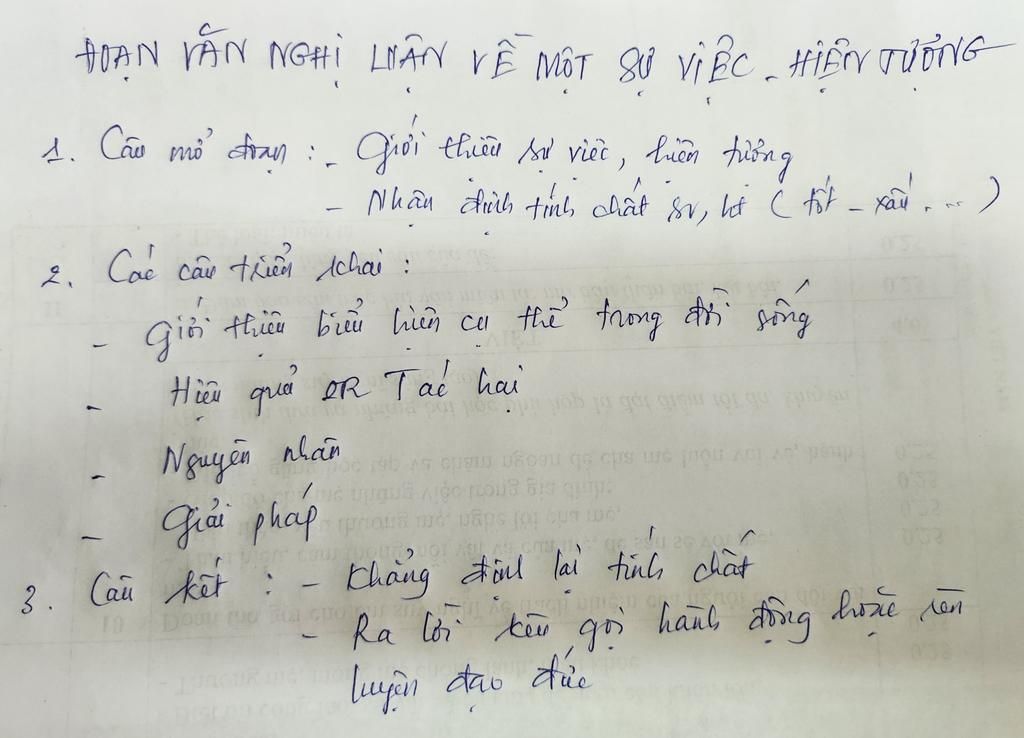 ĐOẠN VĂN NGHỊ LUẬN VỀ MỘT SỰ VIỆC - HIỆN TƯỢNG
1. Câu mở đoạn : - Giới thiệu sự việc, hiện tượng
- Nhận định tính chất sv, ht ( tốt - xấu . ... )
2. Các câu triển khai :
- Giới thiệu biểu hiện cụ thể trong đời sống
- Hiệu quả OR Tác hại
- Nguyên nhân
- Giải pháp
3. Câu kết : - Khẳng định lại tính chất
- Ra lời kêu gọi hành động hoặc rèn
luyện đạo đức